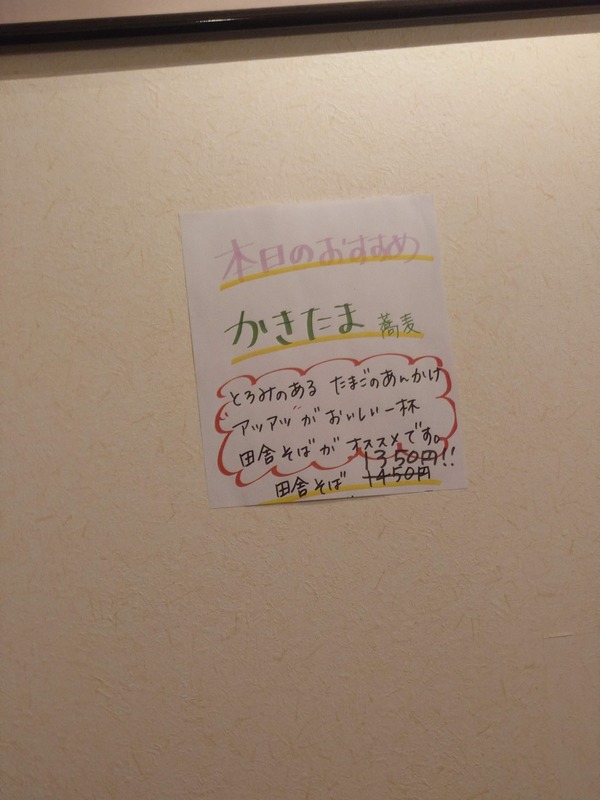 本日のおすすめ
かきたま 蕎麦
とろみのある たまごのあんかけ
アツアツがおいしい一杯
田舎そばが オススメです。
1350円!!
田舎そば 1450円